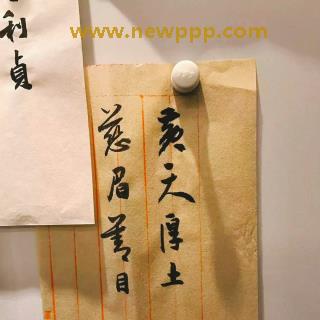 www.newppp.com
黄天厚土
慈眉善目
利貞